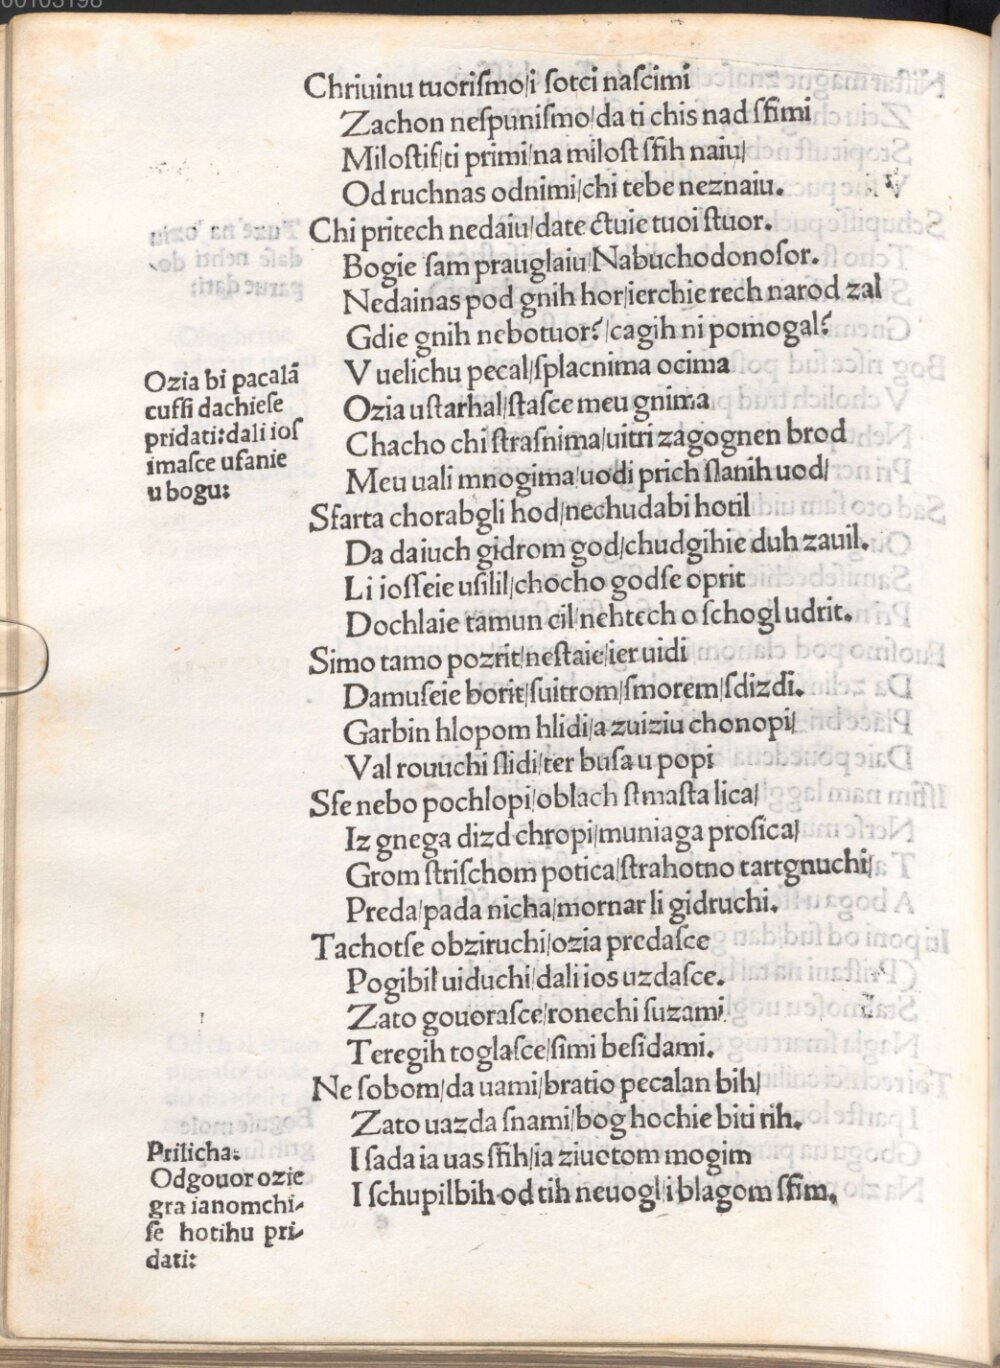 00103198
Chriuinu tuoriſmo/i ſotci naſcimi
Zachon neſpuniſmo/da ti chis nad ſfimi
Miloſtiſ/ti primi/na miloſt ſfih naiu/
Od ruchnas odnimi/chi tebe neznaiu.
Chi pritech nedaiu/date ctuie tuoi ſtuor.
Bogie ſam prauglaiu/Nabuchodonoſor.
Nedainas pod gnih hor/ierchie rech narod zal
Gdie gnih nebotuor?/cagih ni pomogal?
V uelichu pecal/ſplacnima ocima
Ozia uſtarhal/ſtaſce meu gnima
Chacho chi ſtraſnima/uitri zagognen brod
Meu uali mnogima/uodi prich ſlanih uod/
Sfarta chorabgli hod/nechudabi hotil
Da daiuch gidrom god/chudgihie duh zauil.
Li ioſſeie uſilil/chocho godſe oprit
Dochlaie tamun cil/nehtech o ſchogl udrit.
Simo tamo pozrit/neſtaie/ier uidi
Damuſeie borit/ſuitrom/ſmorem/ſdizdi.
Garbin hlopom hlidi/a zuiziu chonopi/
Val rouuchi ſlidi/ter buſa u popi
Sfe nebo pochlopi/oblach ſtmaſta lica/
Iz gnega dizd chropi/muniaga proſica/
Grom ſtriſchom potica/ſtrahotno tartgnuchi/
Preda/pada nicha/mornar li gidruchi.
Tachotſe obziruchi/ozia predaſce
Pogibil uiduchi/dali ios uzdaſce.
Zato gouoraſce/ronechi ſuzami
Teregih toglaſce/ſimi beſidami.
Ne ſobom/da uami/bratio pecalan bih/
Zato uazda ſnami/bog hochie biti tih.
I ſada ia uas ſfih/ia ziuotom mogim
I ſchupilbih od tih neuogl i blagom ſfim.
Ozia bi pecalã
cuſſi dachieſe
pridati:dali ioſ
imaſce ufanie
u bogu:
Prilicha:
Odgouor ozie
gra ianomchi-
ſe hotihu pri-
dati: